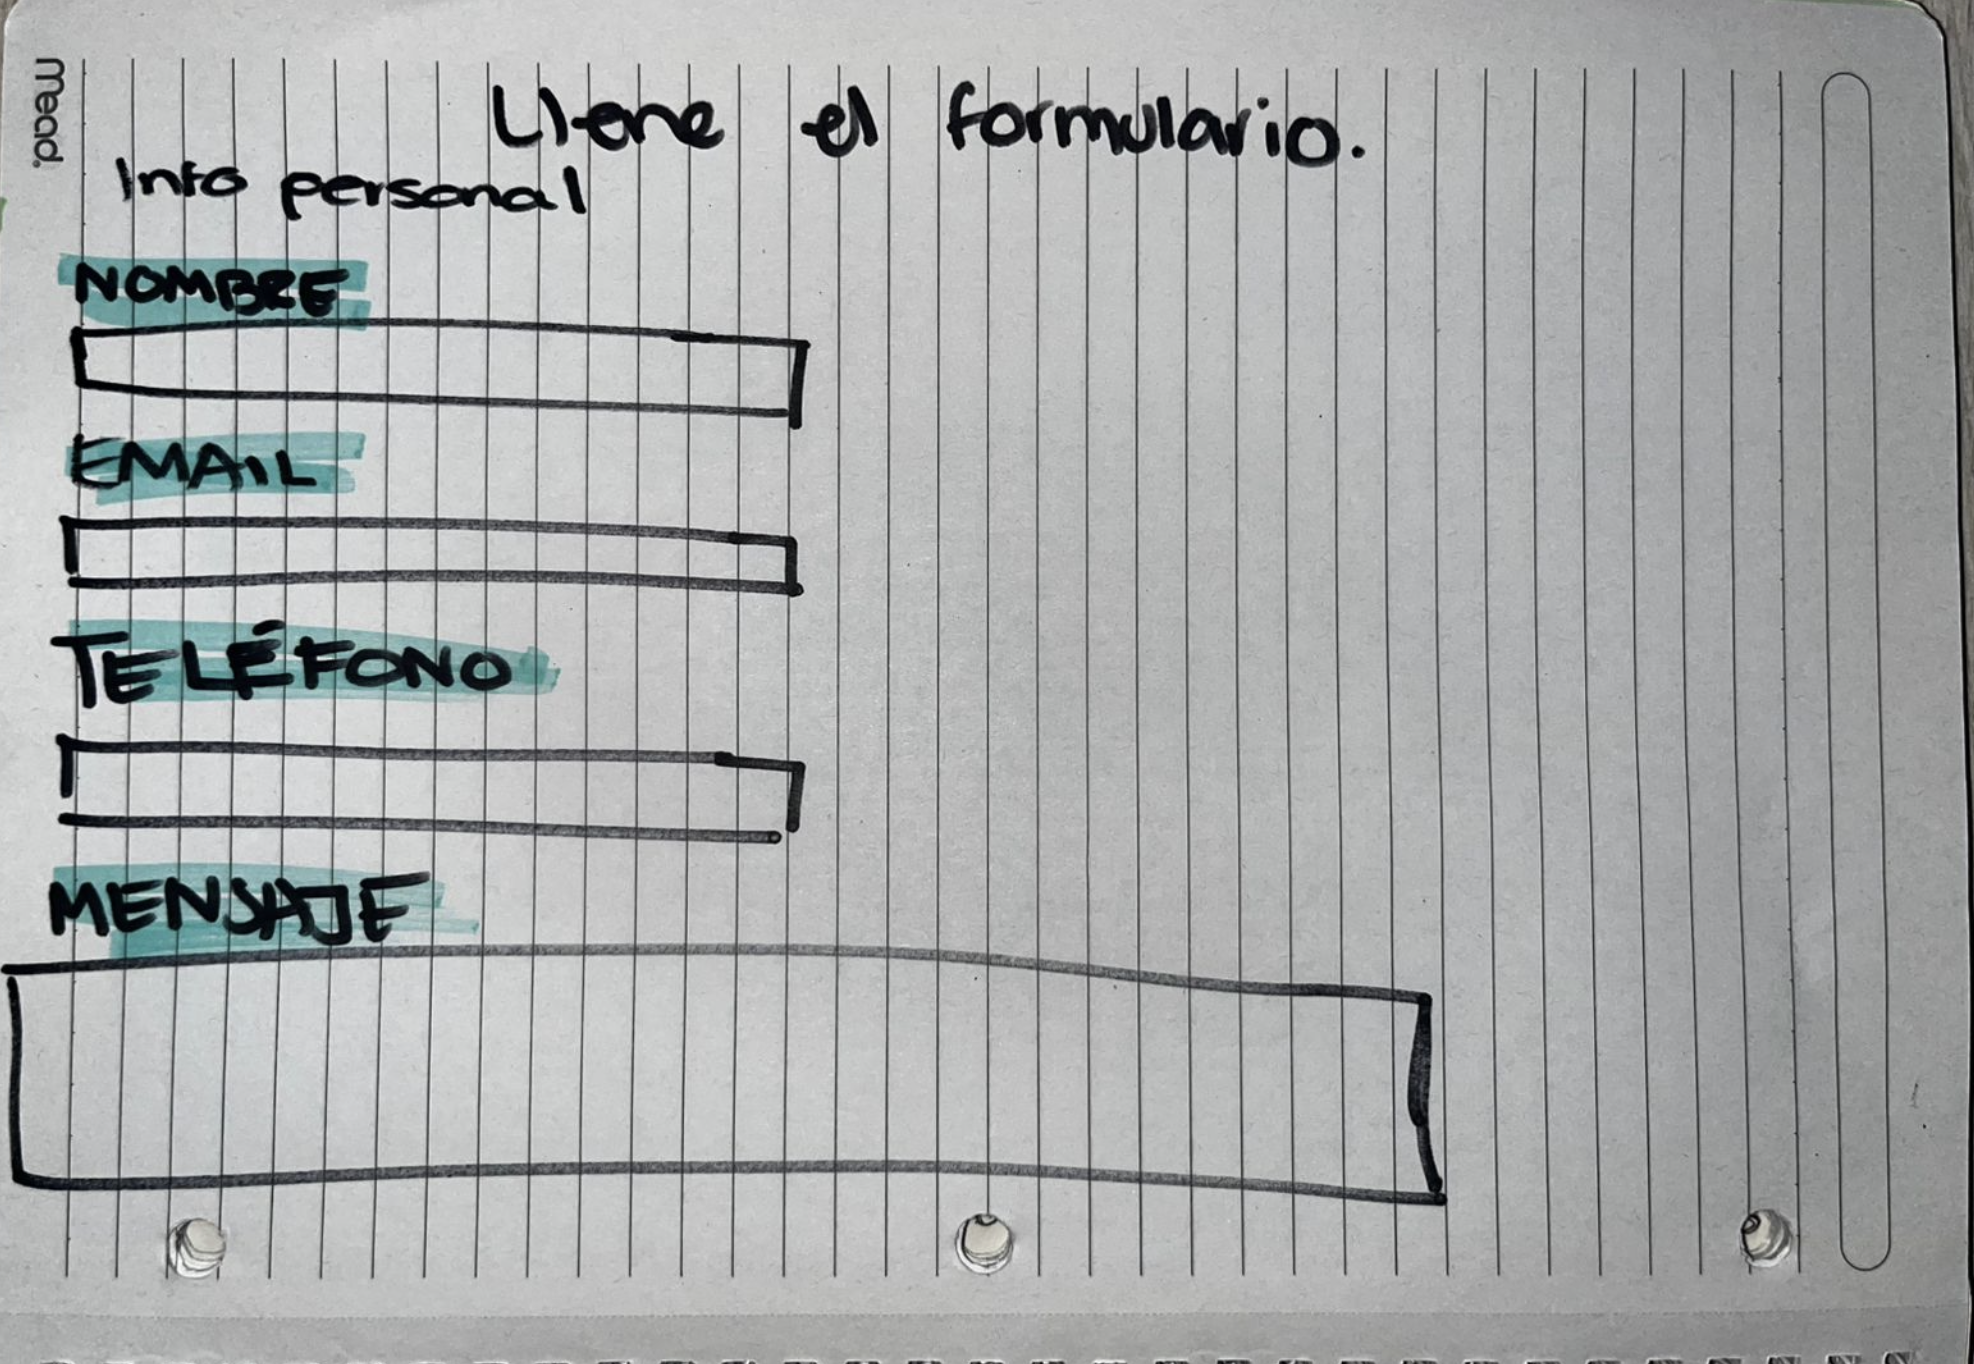 mead.
Llene el formulario.
Info personal
NOMBRE
EMAIL
TELÉFONO
MENSAJE